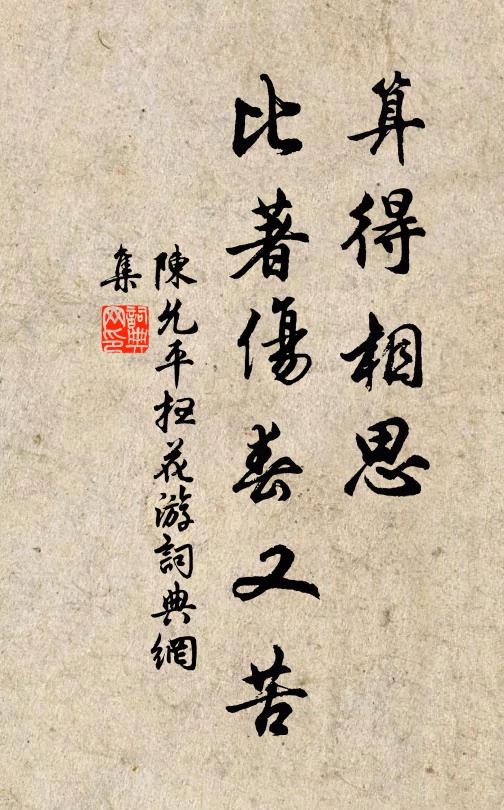 算得相思
比著傷春又苦
陳允平扫花游詞典網
集
詞典
网印